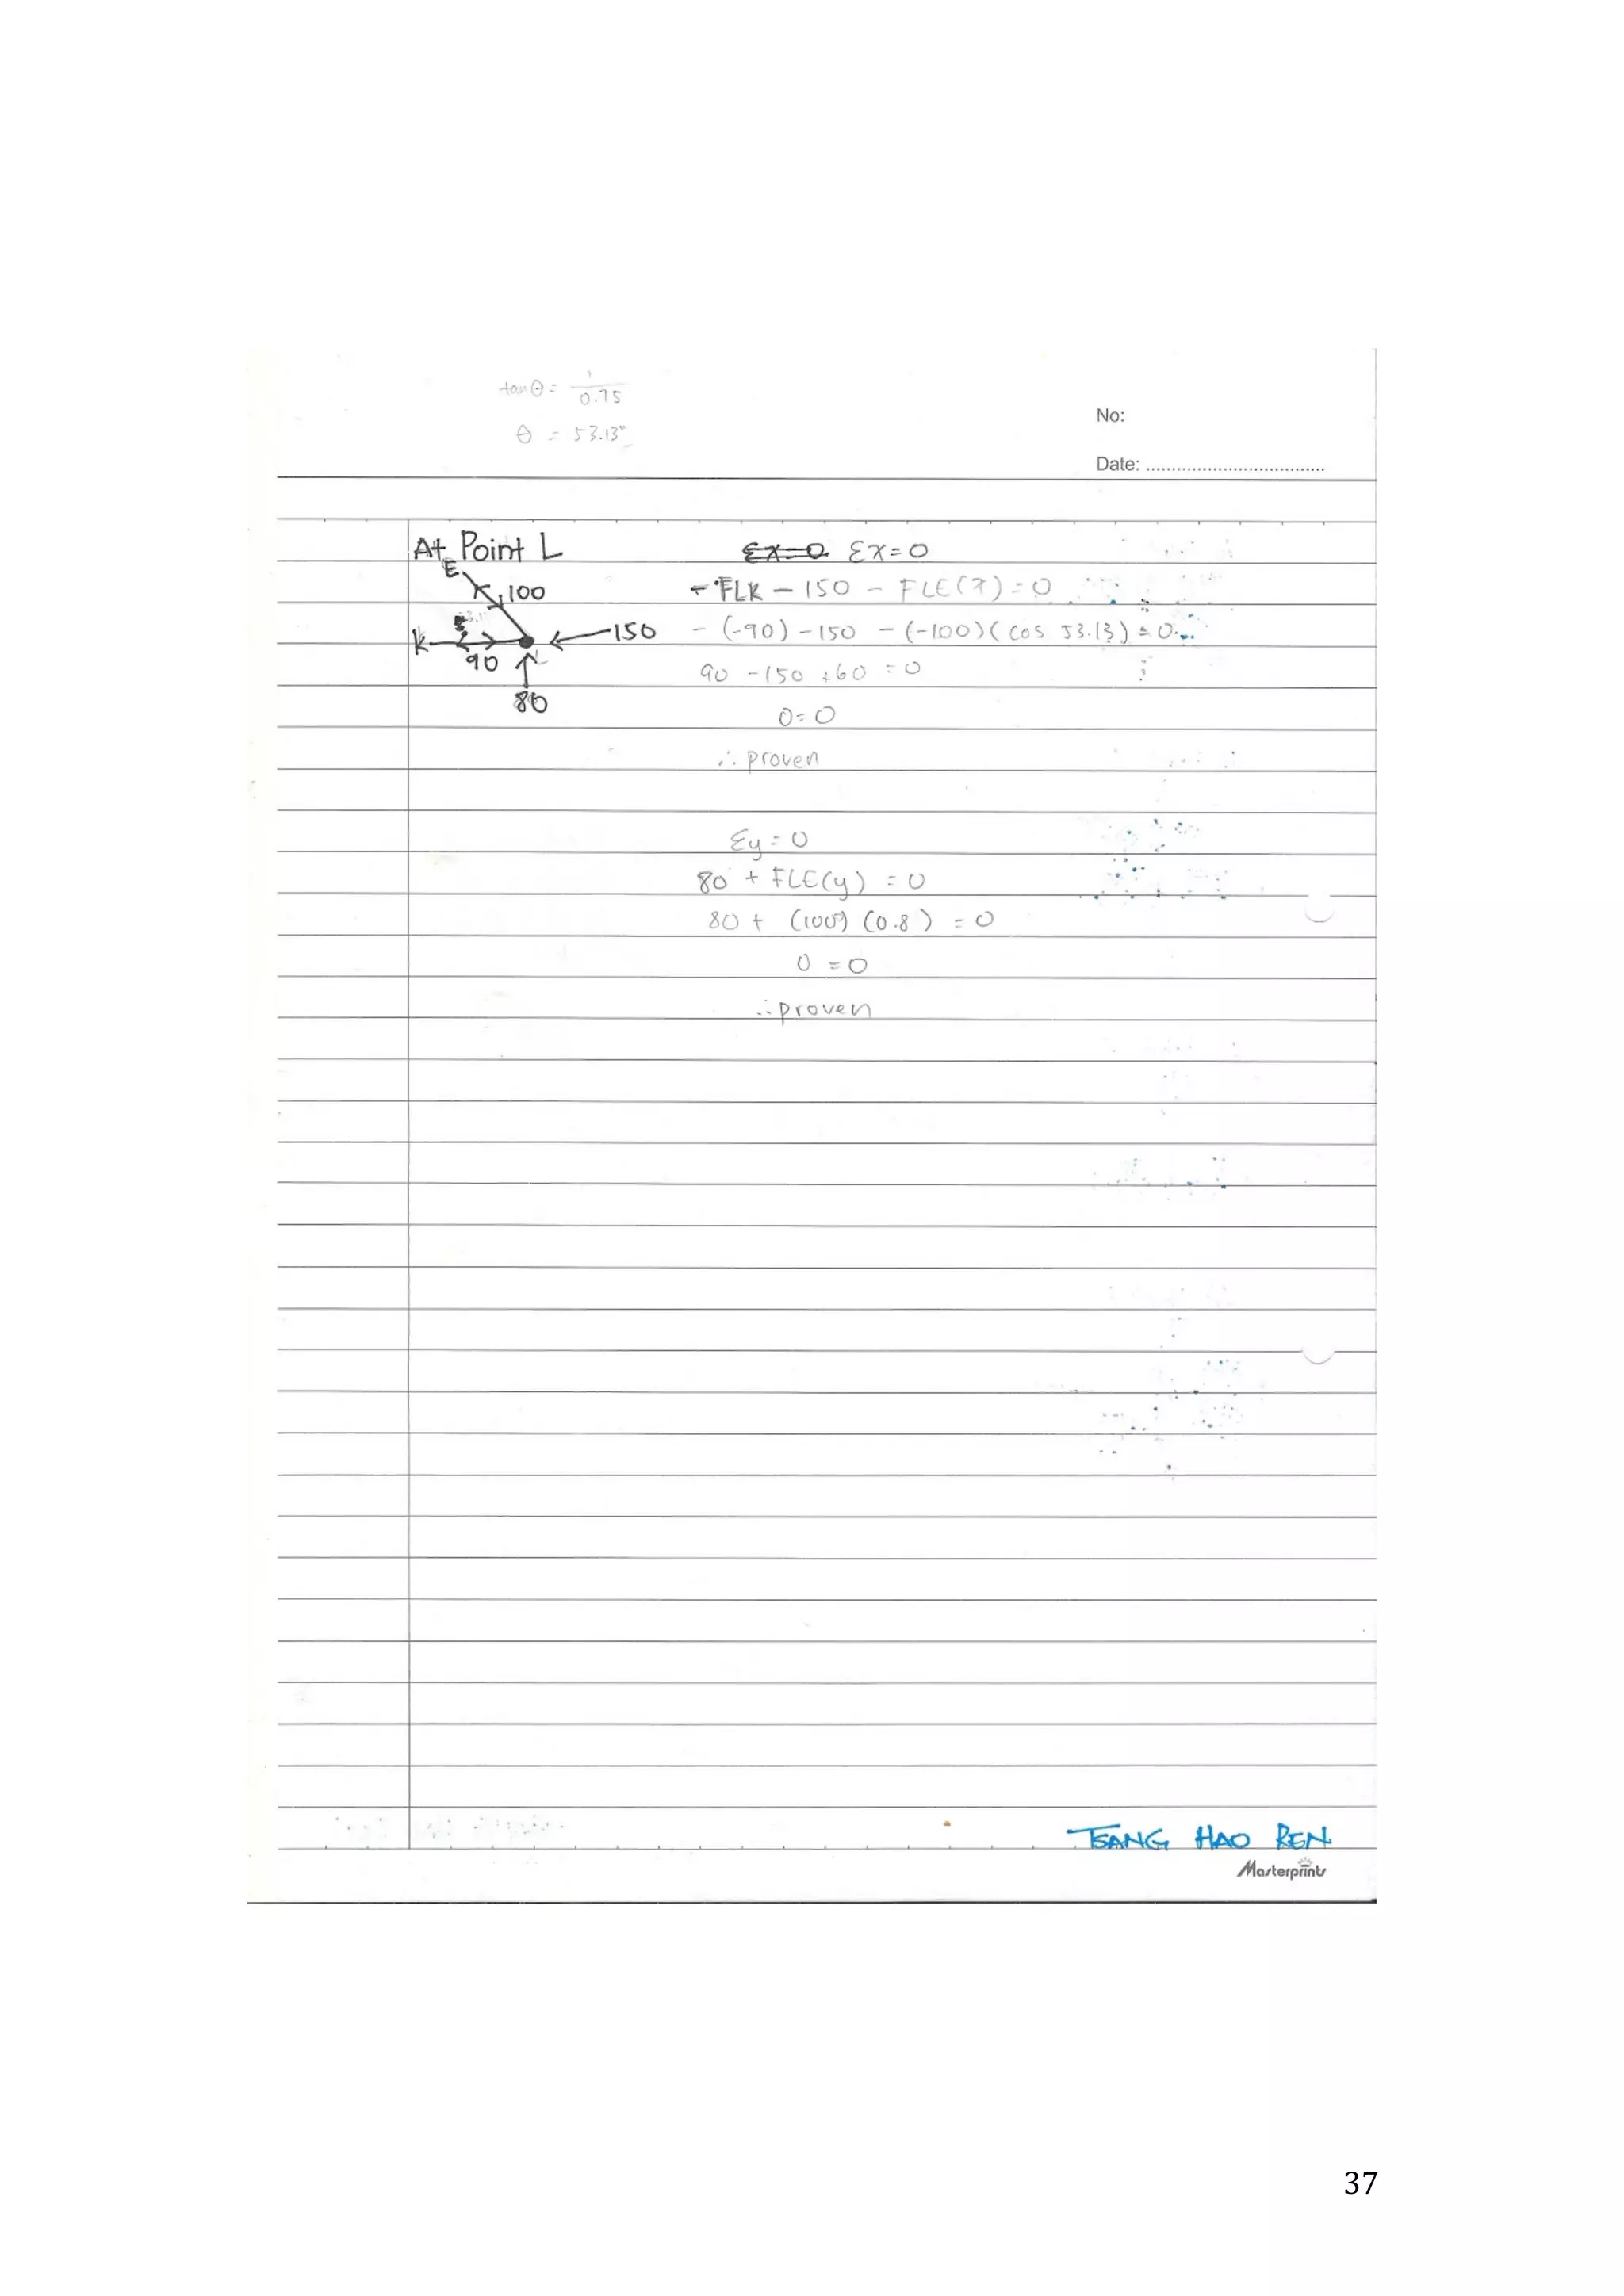 tanθ = 1/0.75
θ = 53.13°
No:
Date: ..................................
At Point L
Σx=0 Σx=0
E
100
- FLK - 150 - FLE(x) = 0
K
150
- (-90) - 150 - (-100)(cos 53.13) = 0
90
90 - 150 + 60 = 0
80
0 = 0
∴ proven
Σy = 0
80 + FLE(y) = 0
80 + (100) (0.8) = 0
0 = 0
∴ proven
TSANG HAO REN
Masterprints
37